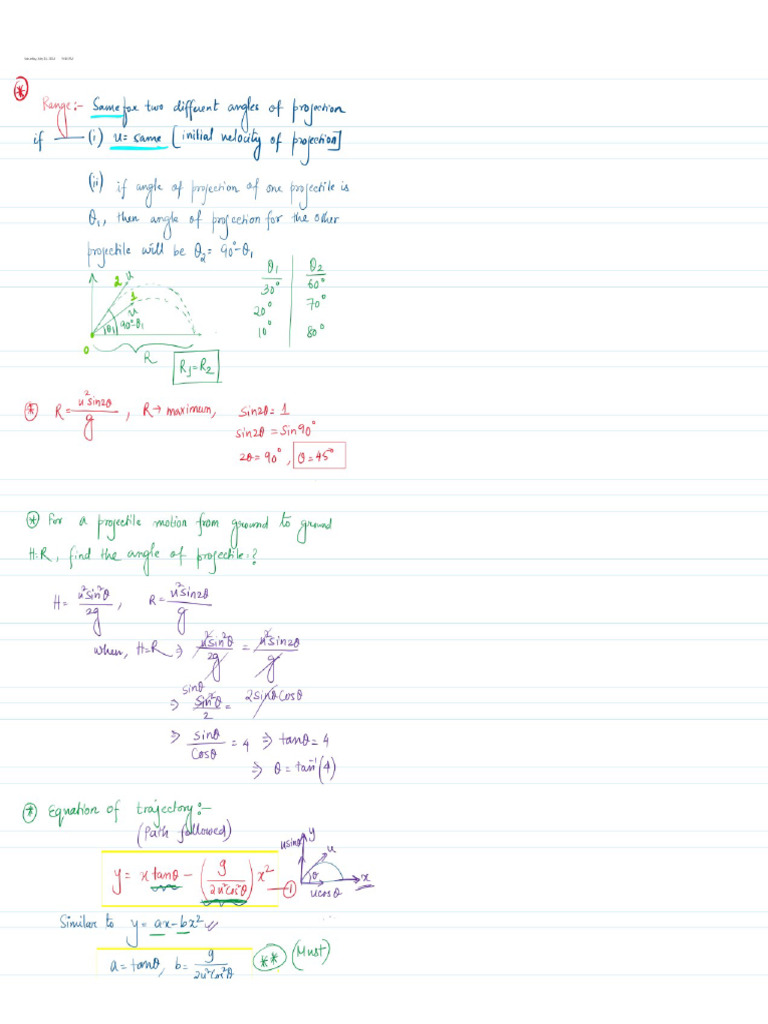 Range:- Same for two different angles of projection
if (i) u = same [initial velocity of projection]
(ii) if angle of projection of one projectile is
θ₁, then angle of projection for the other
projectile will be θ₂ = 90°-θ₁
θ₁ θ₂
30° 60°
20° 70°
10° 80°
2 u
1
u
θ₁ 90°-θ₁
0
R
R₁=R₂
* R = u²sin2θ/g , R → maximum, sin2θ = 1
sin2θ = sin90°
2θ = 90°, θ = 45°
* For a projectile motion from ground to ground
H=R, find the angle of projectile:?
H = u²sin²θ/2g , R = u²sin2θ/g
when, H=R ⇒ u²sin²θ/2g = u²sin2θ/g
sinθ
⇒ sin²θ/2 = 2sinθcosθ
⇒ sinθ/cosθ = 4 ⇒ tanθ = 4
⇒ θ = tan⁻¹(4)
* Equation of trajectory:-
(Path followed)
y = x tanθ - (g/2u²cos²θ) x² — ①
usinθ y
u
θ
x
ucosθ
Similar to y = ax-bx²
a = tanθ, b = g/2u²cos²θ ** (Must)